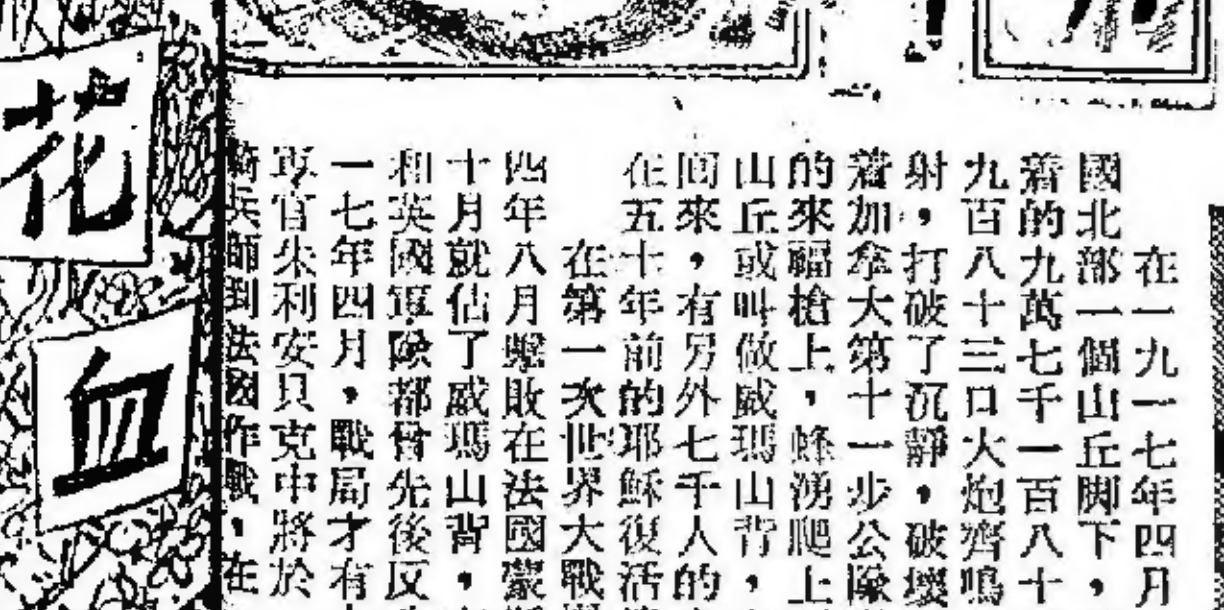 在一九一七年四月
國北部一個山丘脚下，
着的九萬七千一百八十
九百八十三口大炮齊鳴
射，打破了沉靜，破壞
着加拿大第十一步公隊
的來福槍上，蜂湧爬上
山丘或叫做威瑪山背，
間來，有另外七千人的
在五十年前的耶穌復活
在第一次世界大戰
四年八月擊敗在法國蒙
十月就佔了威瑪山背，
和英國軍隊都曾先後反
一七年四月，戰局才有
軍官朱利安貝克中將於
騎兵師到法國作戰，在
花
血